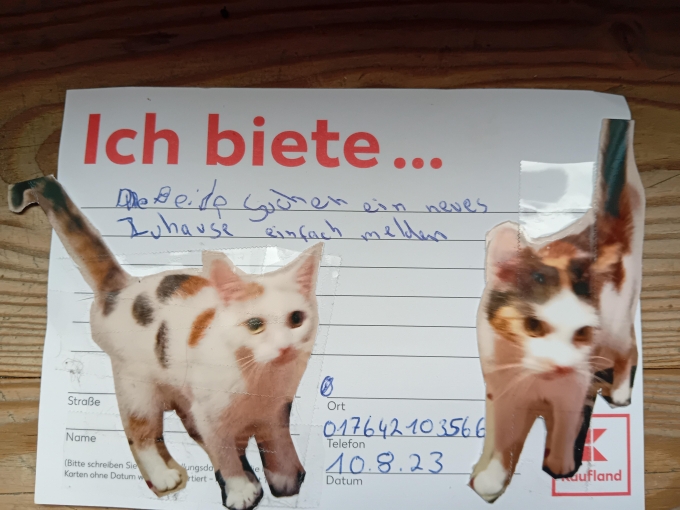 Ich biete...
Die Beide suchen ein neues
Zuhause einfach melden
Straße
Ort
Name
01764210356
Telefon
(Bitte schreiben Sie
Karten ohne Datum
10.8.23
Datum
Kaufland